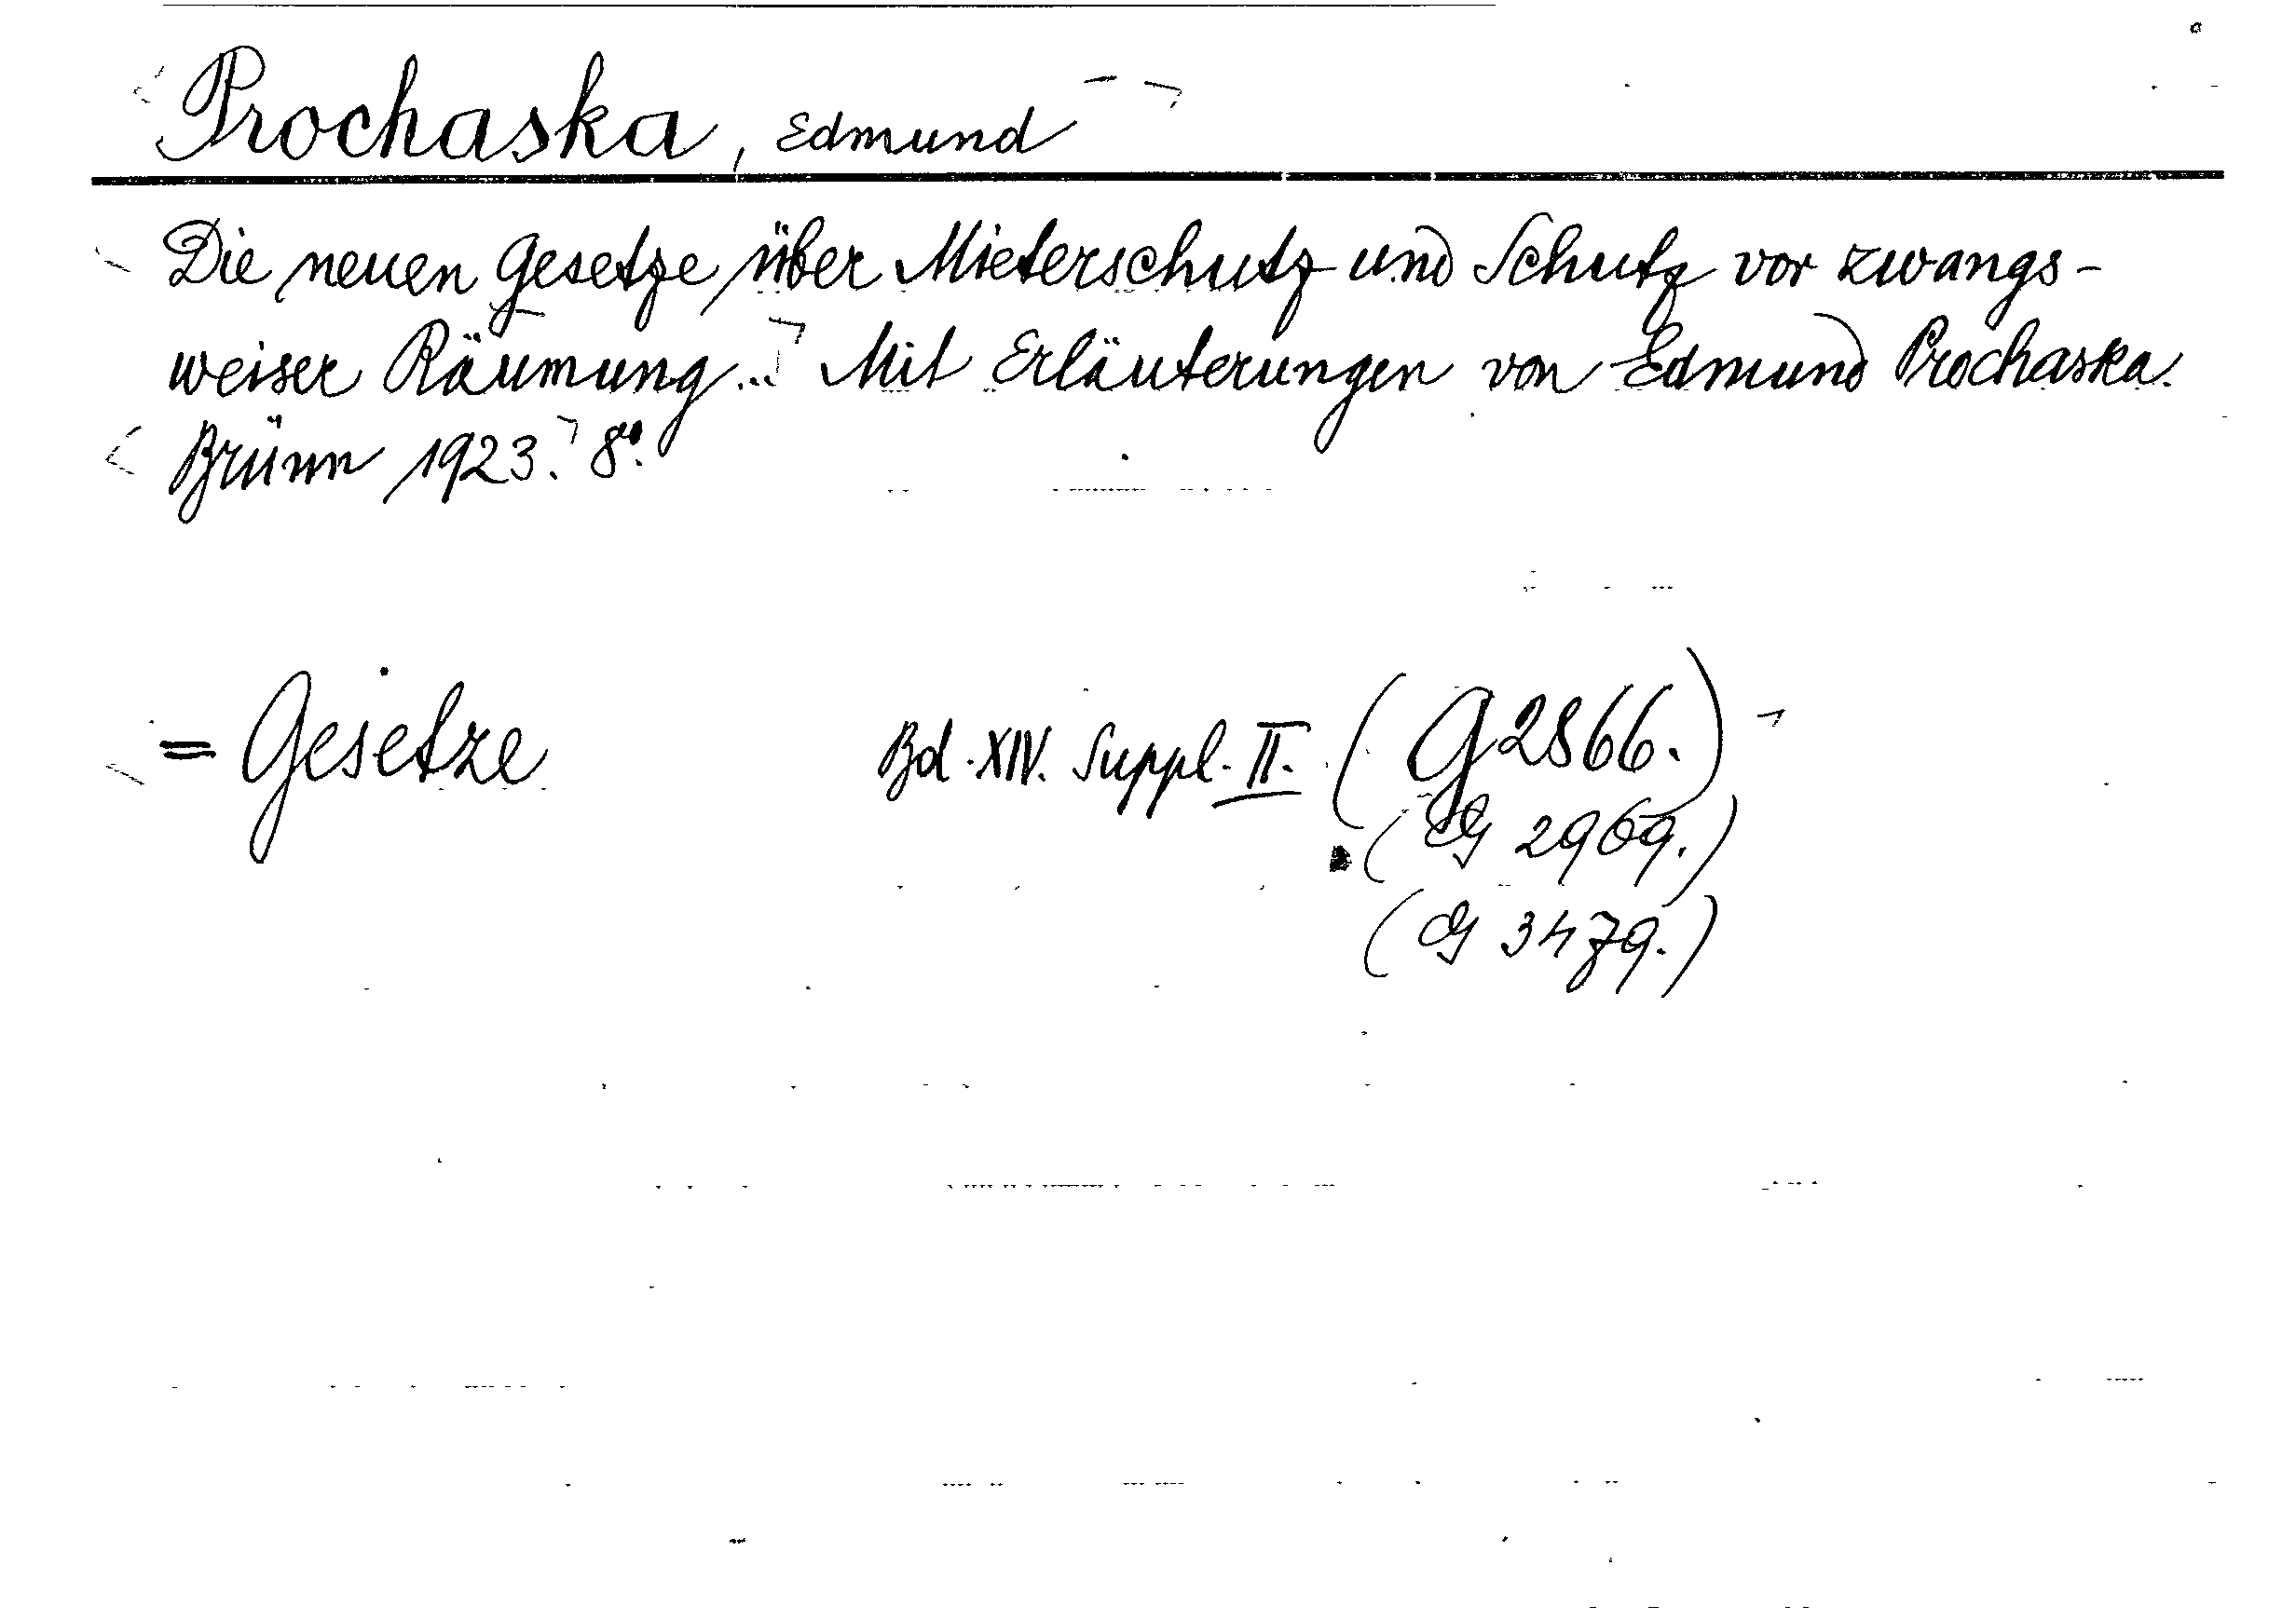 Prochaska, Edmund
Die neuen Gesetze über Mieterschutz und Schutz vor zwangs-
weiser Räumung... Mit Erläuterungen von Edmund Prochaska.
Brünn 1923. 8°.
= Gesetze Bd. XIV. Suppl. II. (G 2866.)
(G 2969.)
(G 3479.)